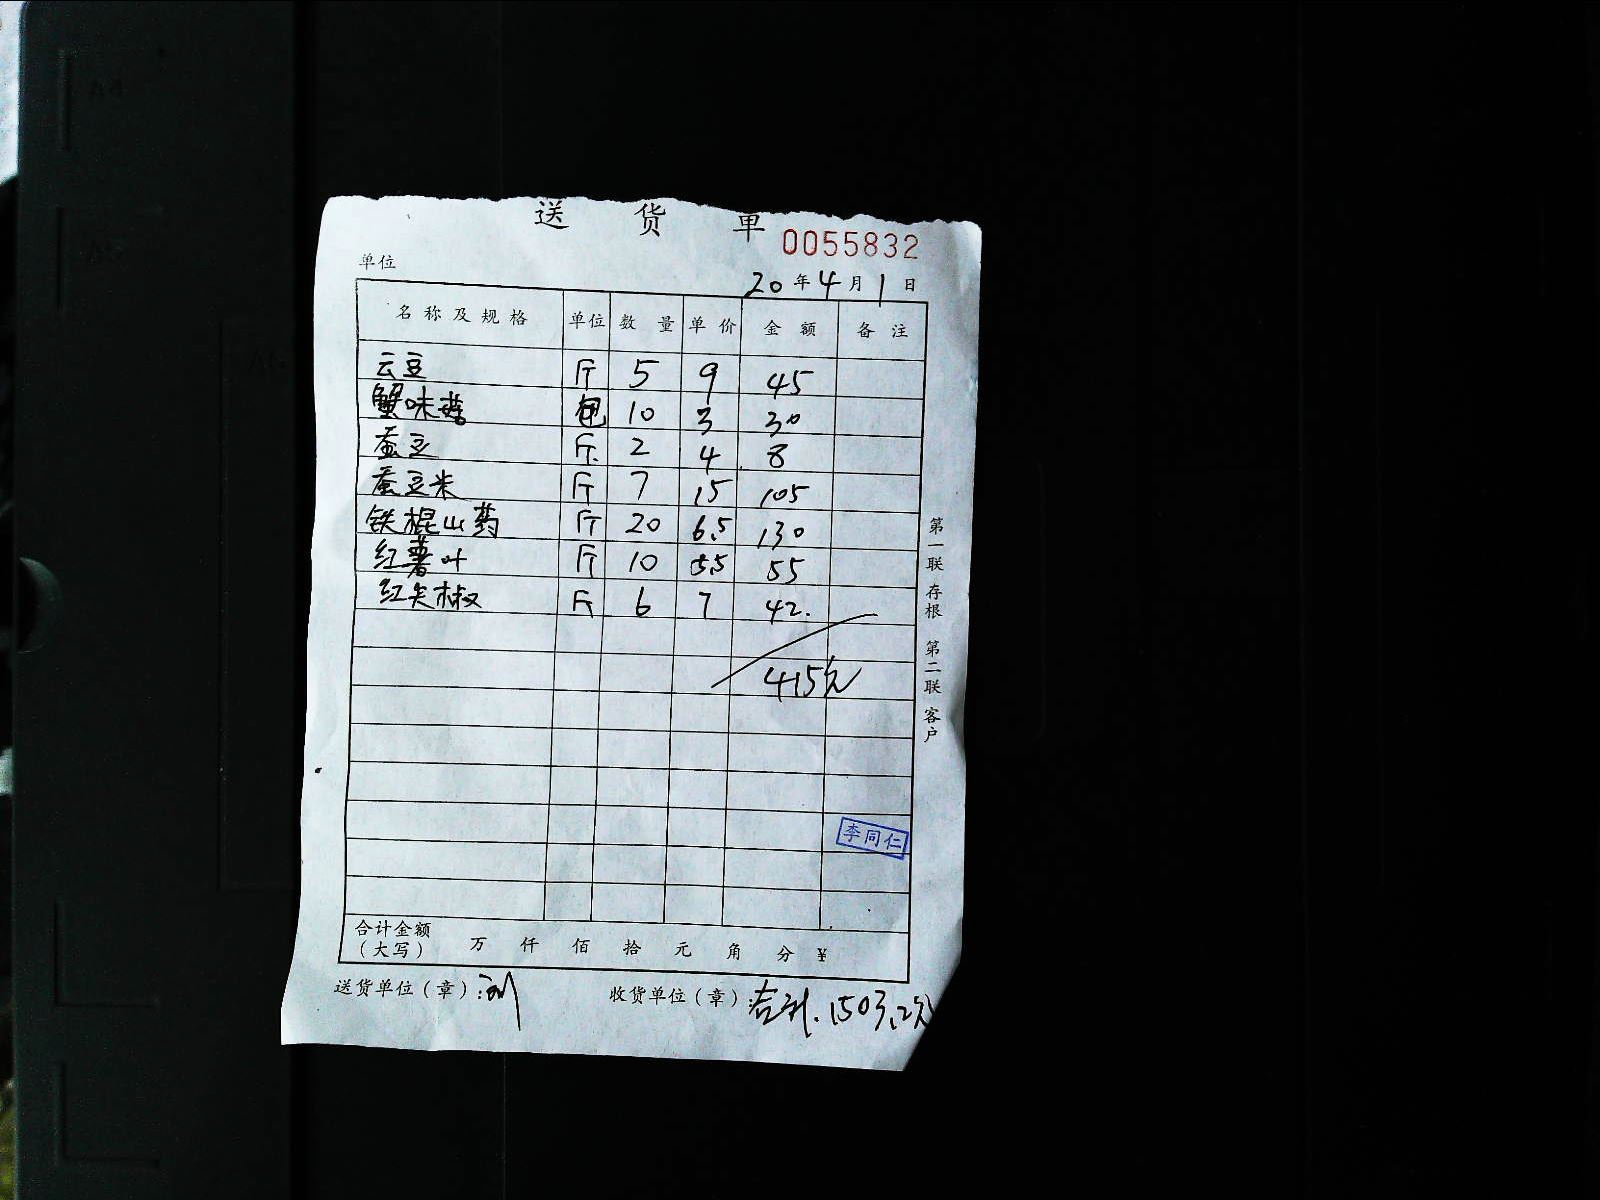 送 货 单
0055832
单位
20 年 4 月 1 日
名称及规格 单位 数量 单价 金额 备注
云豆 斤 5 9 45
蟹味菇 包 10 3 30
蚕豆 斤 2 4 8
蚕豆米 斤 7 15 105
铁棍山药 斤 20 6.5 130
红薯叶 斤 10 5.5 55
红尖椒 斤 6 7 42.
415元
第一联 存根 第二联 客户
李同仁
合计金额
(大写) 万 仟 佰 拾 元 角 分 ¥
送货单位(章): 刘 收货单位(章): 合计. 1503.2元